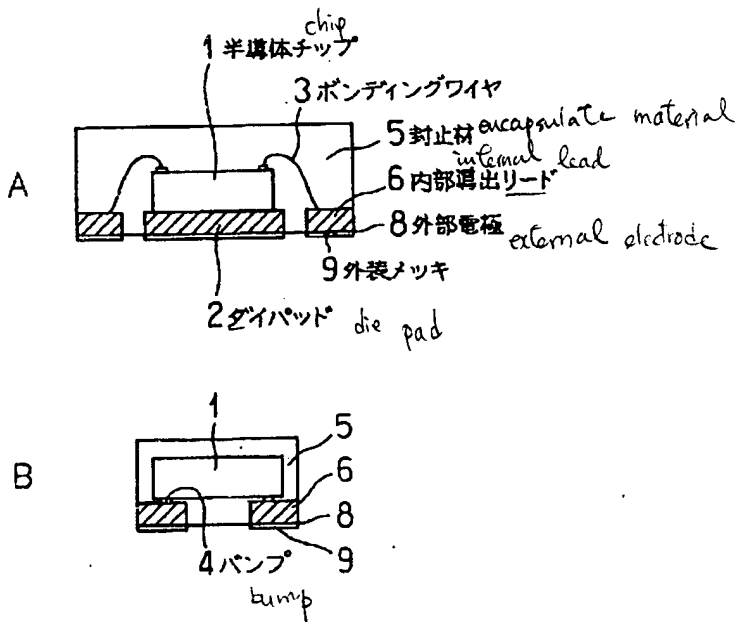 chip
1 半導体チップ
3 ボンディングワイヤ
5 封止材 encapsulate material
internal lead
A
6 内部導出リード
8 外部電極 external electrode
9 外装メッキ
2 ダイパッド die pad
1
5
B
6
8
4 バンプ
9
bump